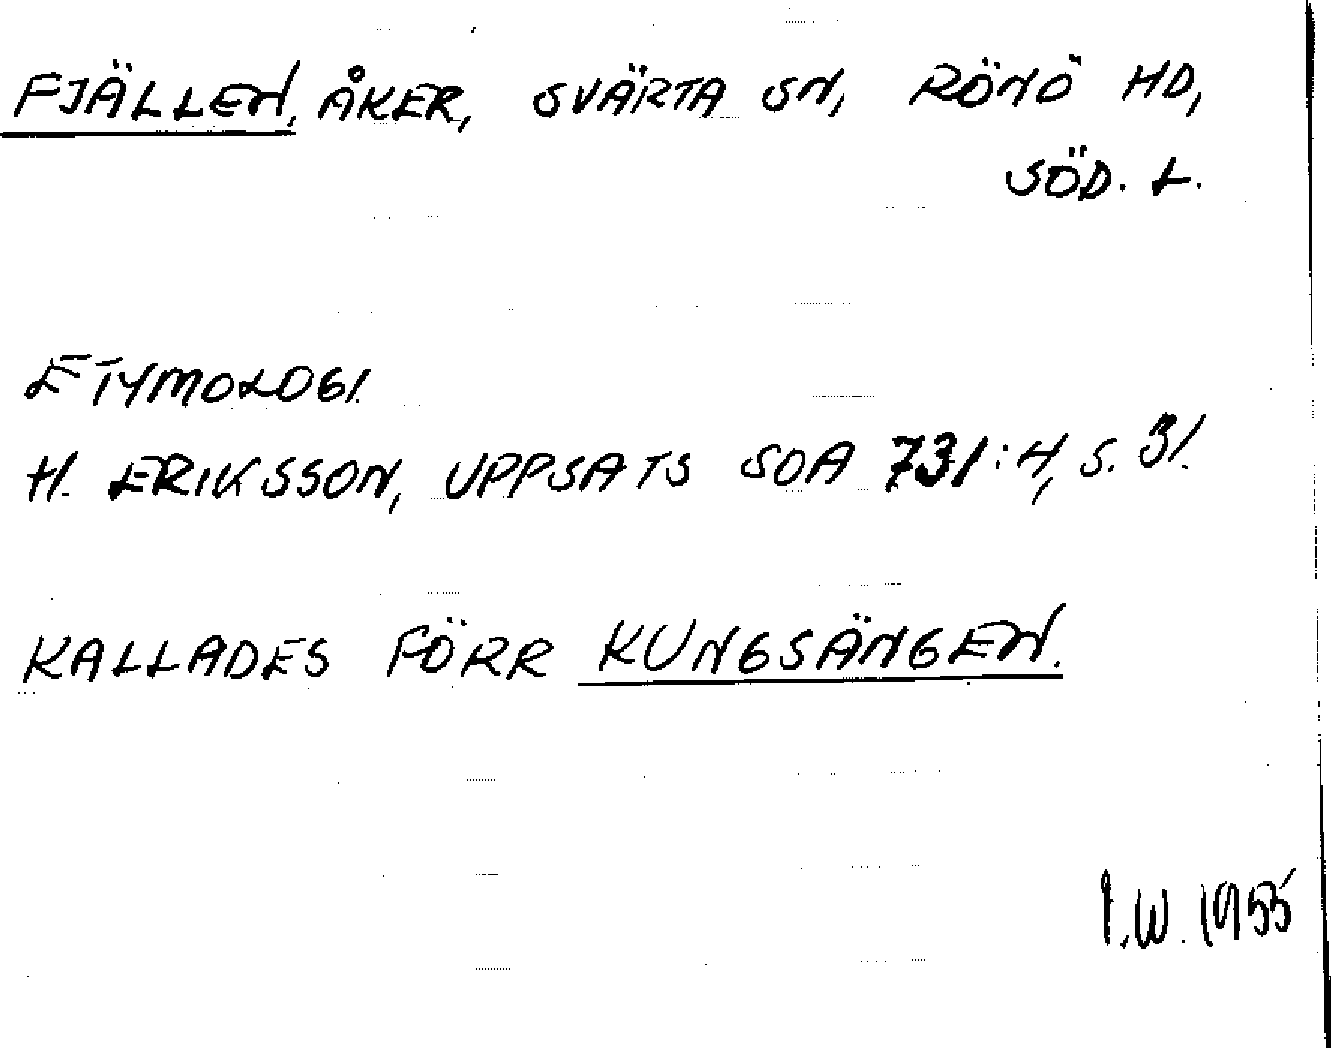 FJÄLLEN, ÅKER, SVÄRTA SN, RÖNÖ HD,
SÖD. L.
ETYMOLOGI.
H. ERIKSSON, UPPSATS SOA 731:4, S. 31.
KALLADES FÖRR KUNGSÄNGEN.
I.W. 1955